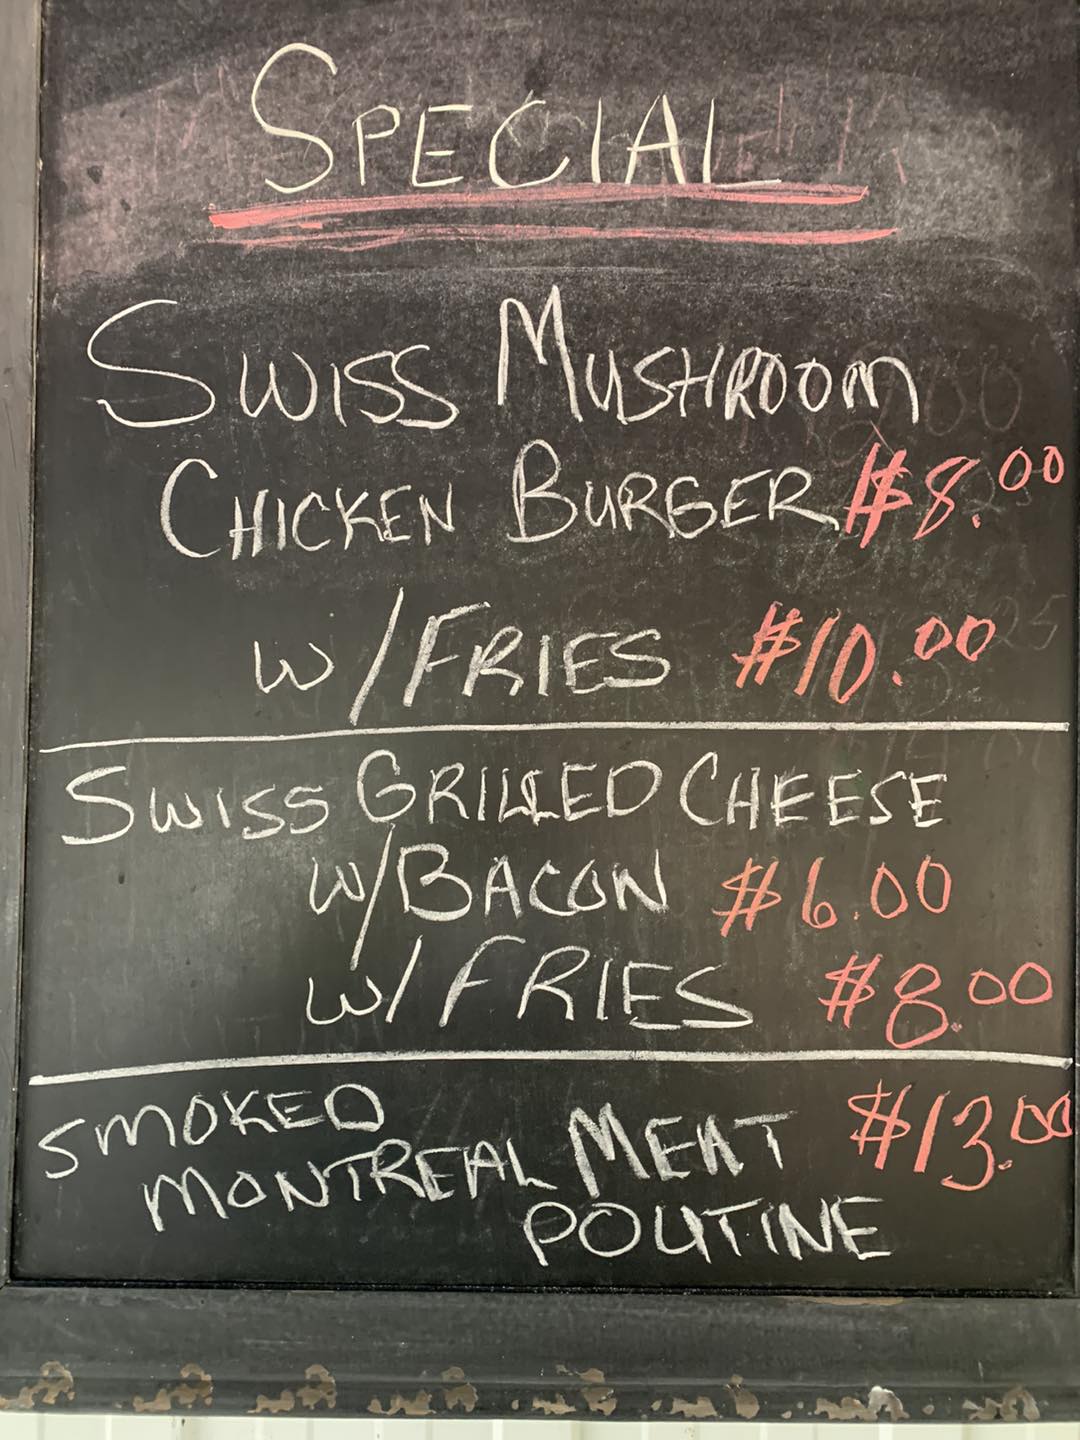 SPECIAL
SWISS MUSHROOM
CHICKEN BURGER $8.00
W/FRIES $10.00
SWISS GRILLED CHEESE
W/BACON $6.00
W/FRIES $8.00
SMOKED
MONTREAL MEAT $13.00
POUTINE